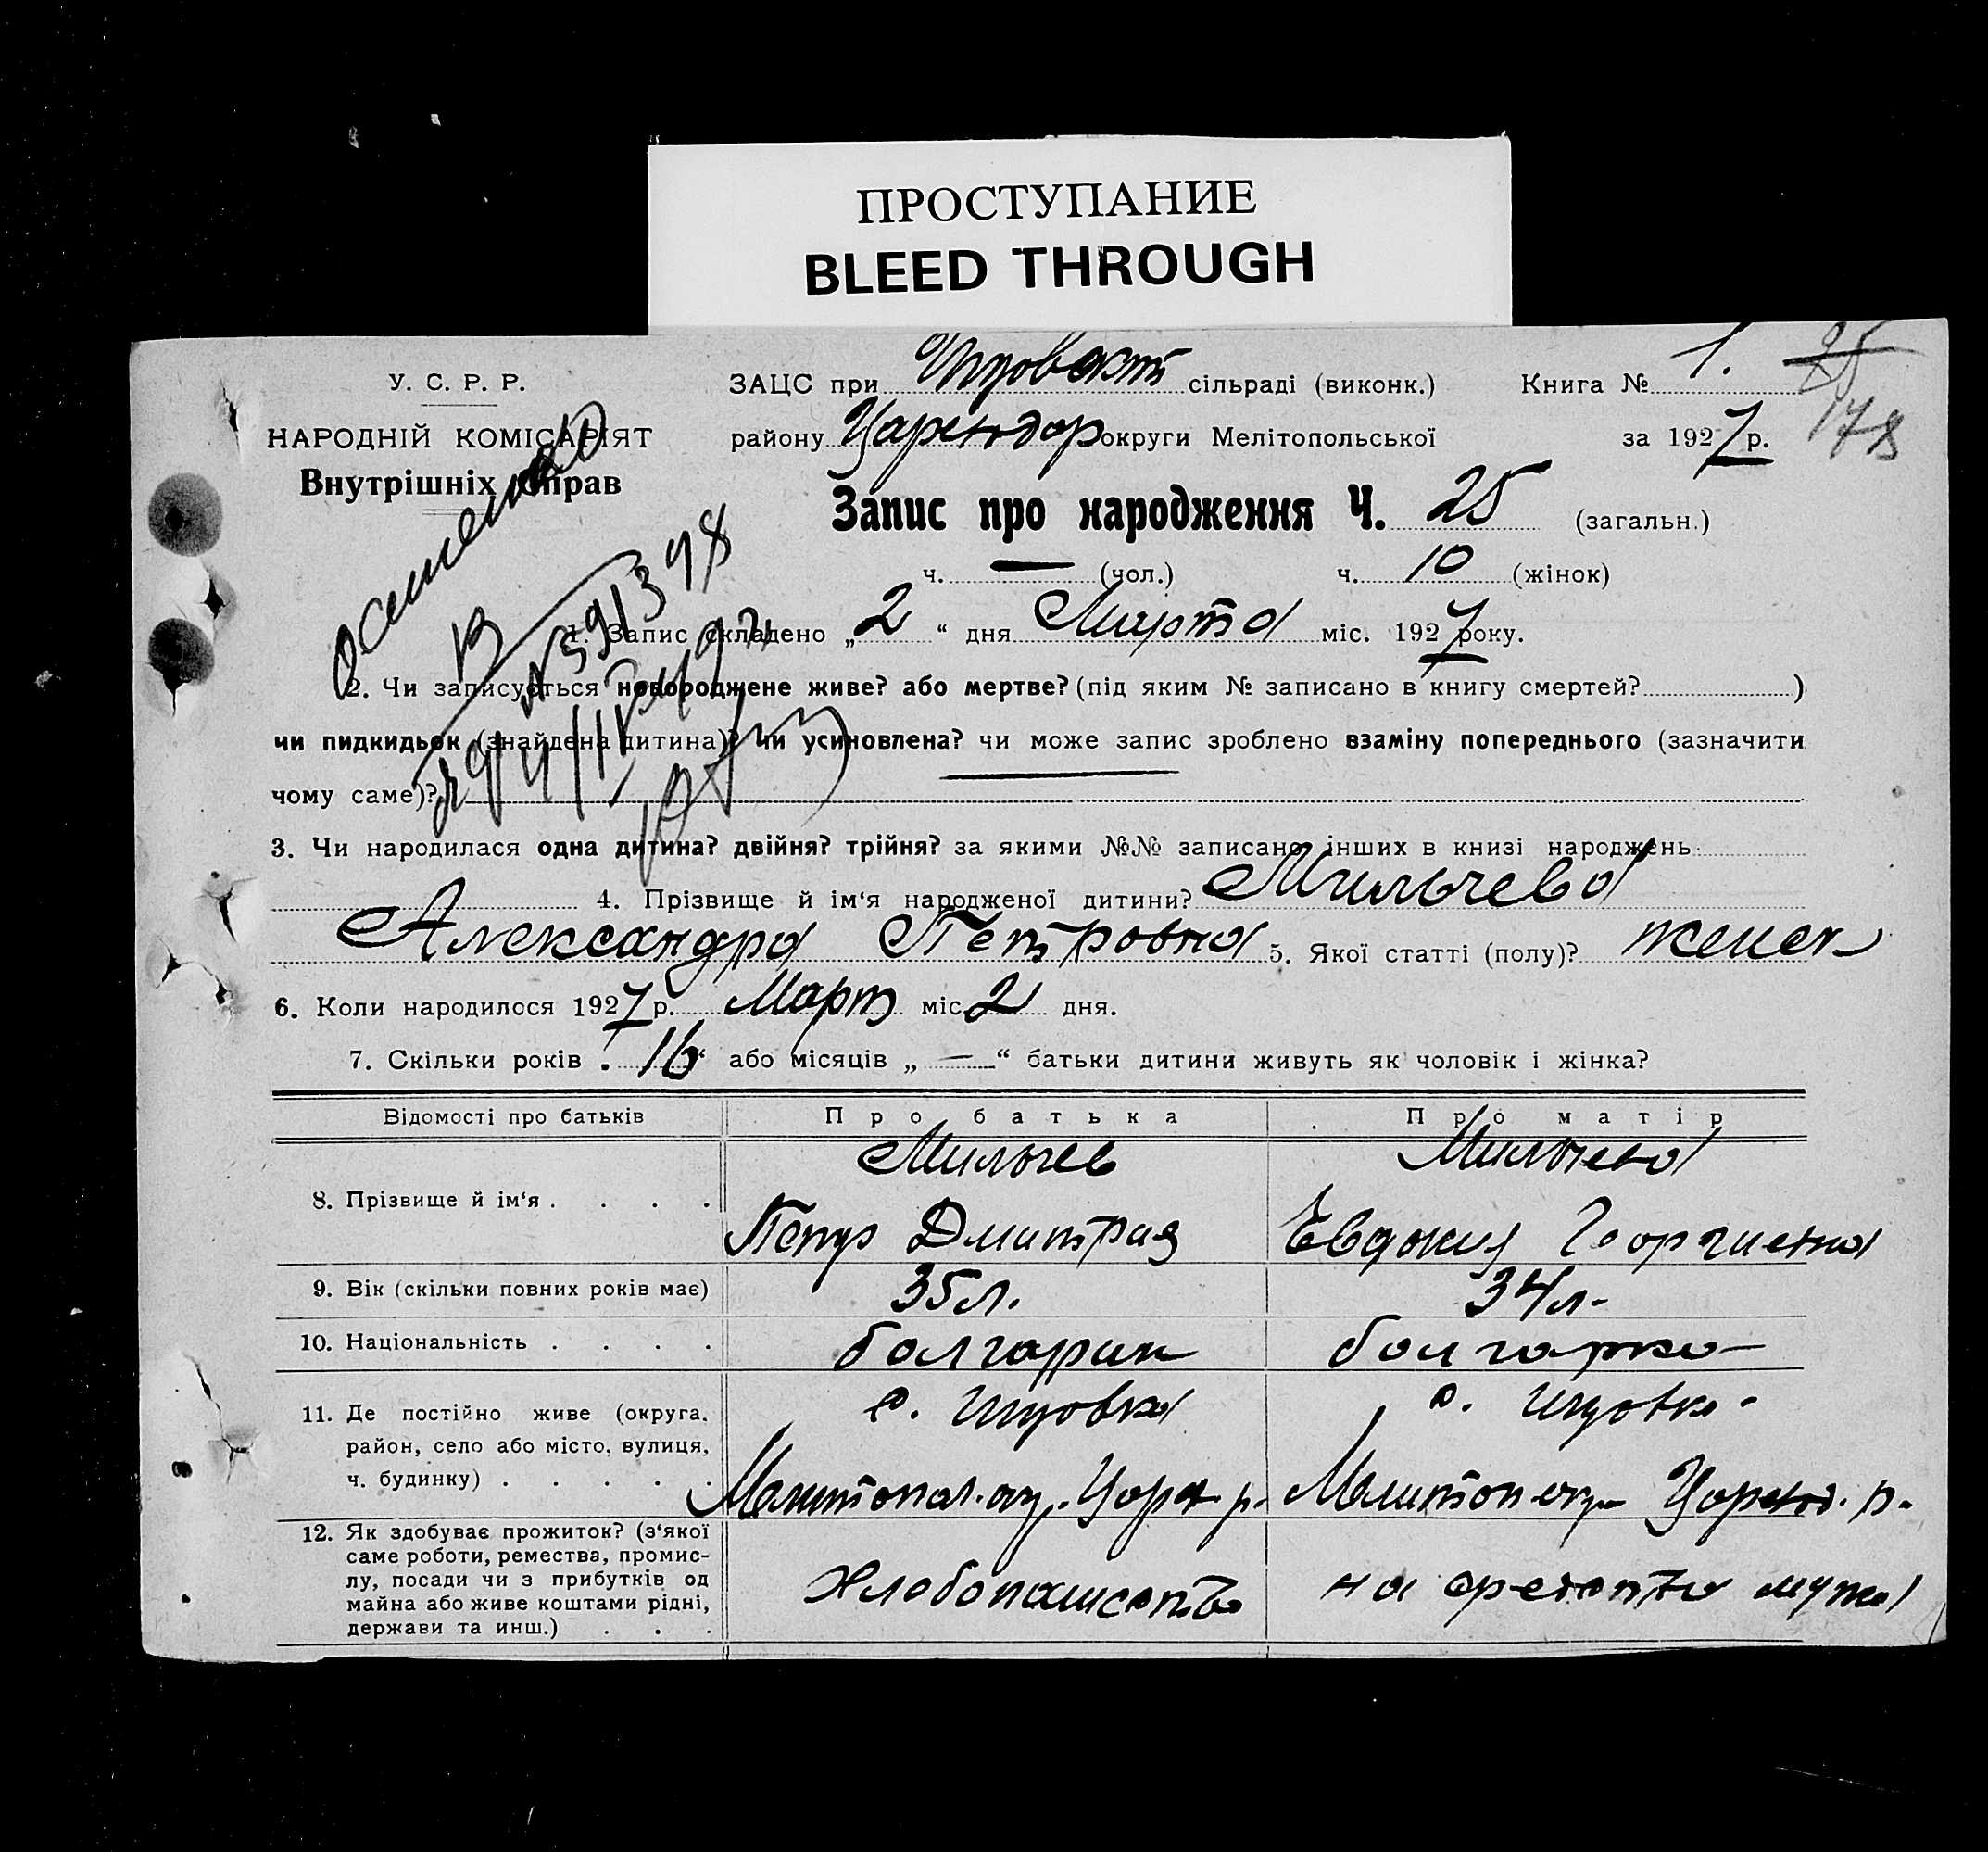 ПРОСТУПАНИЕ
BLEED THROUGH
У. С. Р. Р.
НАРОДНІЙ КОМІСАРІЯТ
Внутрішніх Справ
ЗАЦС при сільраді (виконк.) Книга № 1.
25
178
району округи Мелітопольської за 1927 р.
Запис про народження Ч. 25 (загальн.)
ч. — (чол.) ч. 10 (жінок)
1. Запис складено „2“ дня Марта міс. 1927 року.
2. Чи записується новороджене живе? або мертве? (під яким № записано в книгу смертей? )
чи пидкидьок (знайдена дитина)? чи усиновлена? чи може запис зроблено взаміну попереднього (зазначити
чому саме)?
3. Чи народилася одна дитина? двійня? трійня? за якими №№ записано інших в книзі народжень
4. Прізвище й ім‘я народженої дитини? Мильчева
Александра Петровна 5. Якої статті (полу)? женск
6. Коли народилося 1927 р. Март міс. 2 дня.
7. Скільки років 16 або місяців „ — “ батьки дитини живуть як чоловік і жінка?
Відомості про батьків Про батька Про матір
8. Прізвище й ім‘я . . . .
Мильчев
Петр Дмитрия
Мильчева
Евдокия Георгиевна
9. Вік (скільки повних років має) 35 л. 34 л.
10. Національність . . . . болгарин болгарка
11. Де постійно живе (округа, район, село або місто, вулиця, ч. будинку) . . . . .
12. Як здобуває прожиток? (з‘якої
саме роботи, ремества, промис-
лу, посади чи з прибутків од
майна або живе коштами рідні,
держави та инш.) . . .
Хлебопашество
на средства мужа